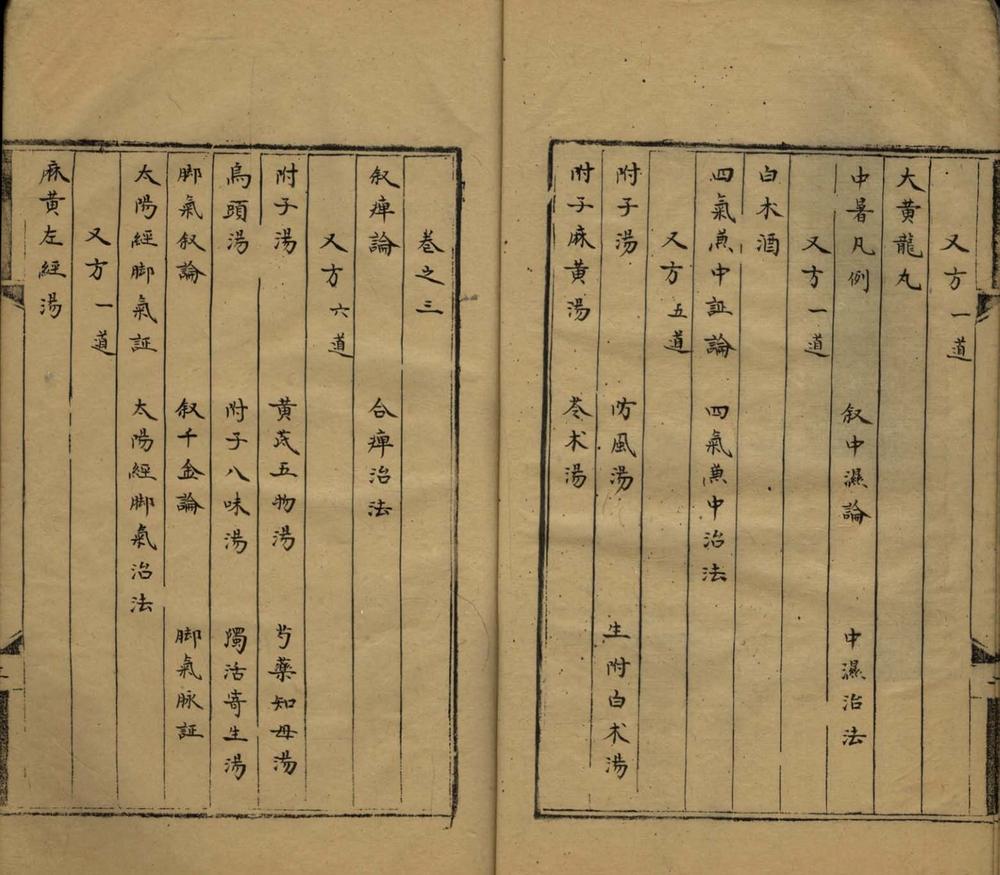 又方一道
大黄龍丸
中暑凡例 叙中濕論 中濕治法
又方一道
白术酒
四氣蒹中証論 四氣蒹中治法
又方五道
附子湯 防風湯 生附白术湯
附子麻黄湯 苓术湯
卷之三
叙痺論 合痺治法
又方六道
附子湯 黄茋五物湯 芍藥知母湯
烏頭湯 附子八味湯 獨活寄生湯
脚氣叙論 叙千金論 脚氣脉証
太陽經脚氣証 太陽經脚氣治法
又方一道
麻黄左經湯